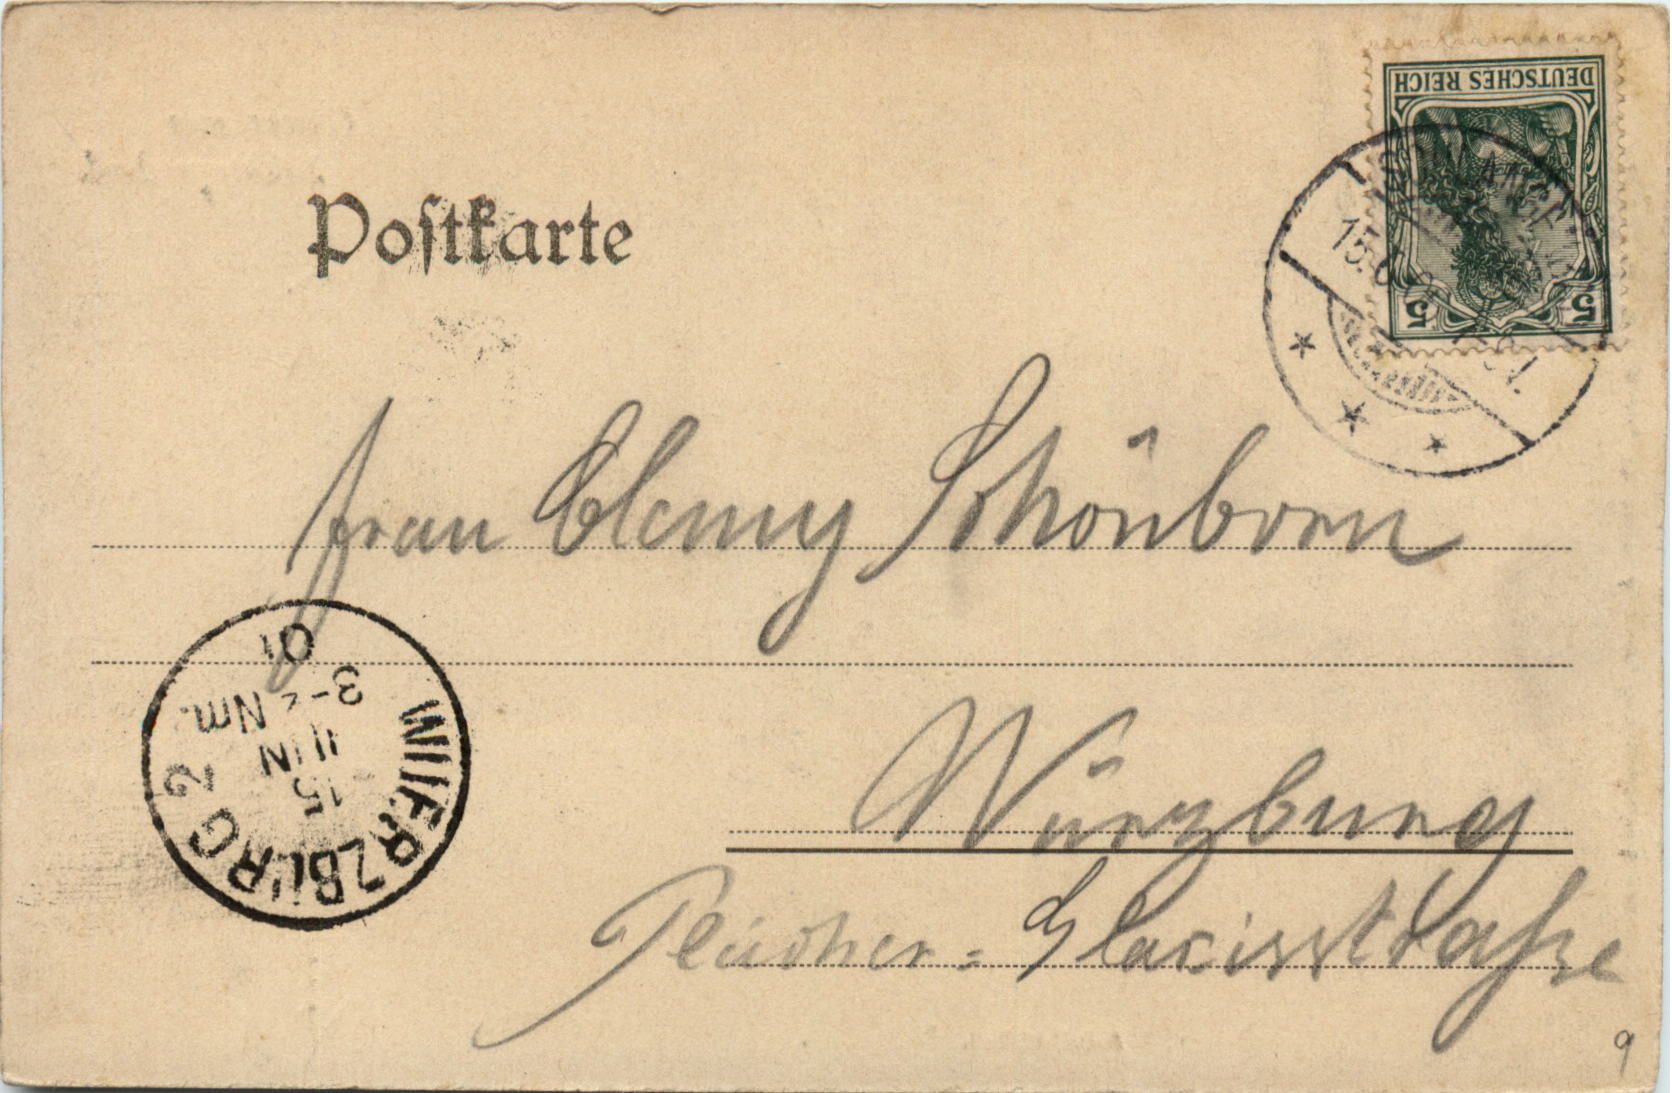 DEUTSCHES REICH
5 5
Postkarte
15.6.
Frau Clemy Schönborn
01
3-4 Nm.
15 JUN
WUERZBURG 2
Würzburg
Pleicher=Glacisstraße
9